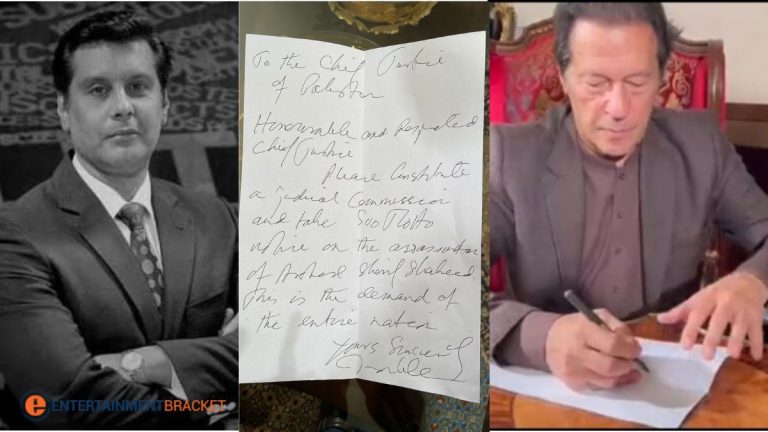 To the Chief Justice
of Pakistan
Honourable and Respected
Chief Justice
Please Constitute
a judicial Commission
and take Suo Motto
notice on the assassination
of Arshad Sharif Shaheed.
This is the demand of
the entire nation
Yours Sincerely
e ENTERTAINMENTBRACKET